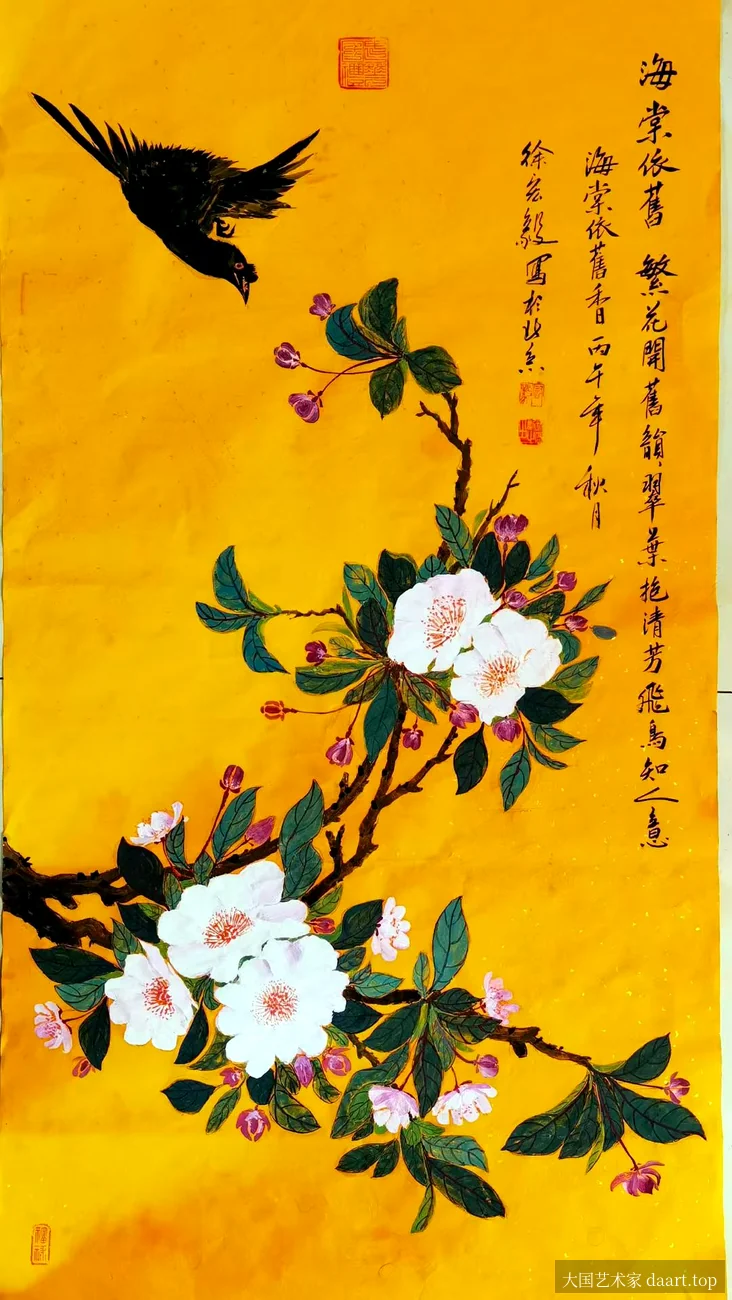 海棠依舊 繁花開舊韻 翠葉抱清芳 飛鳥知人意
海棠依舊香 丙午年 秋月
徐宏毅 寫於北京
大国艺术家 daart.top